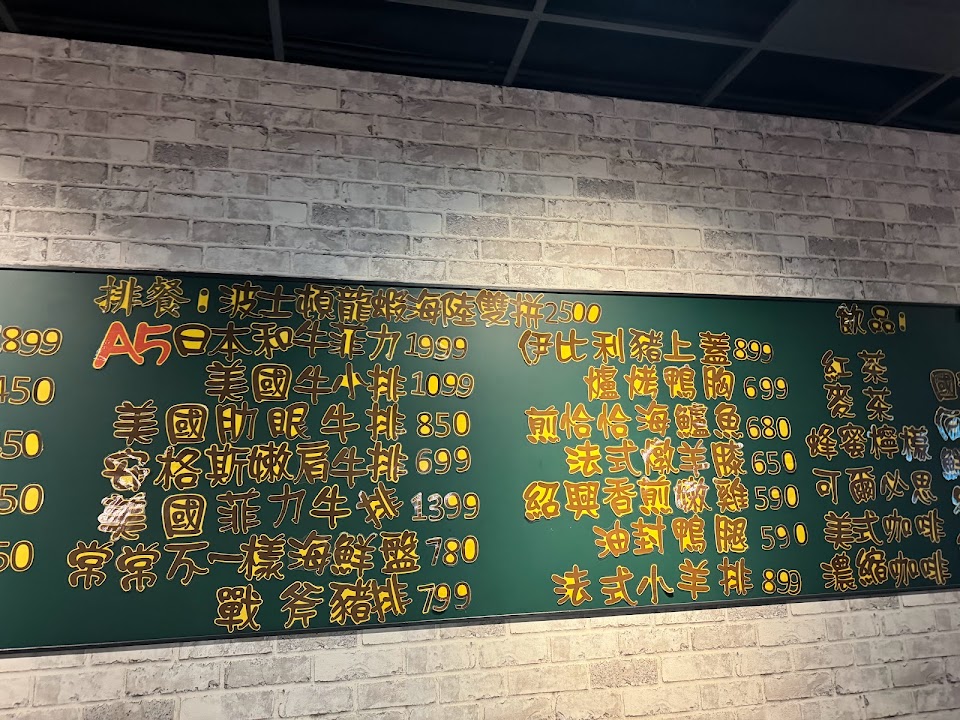 排餐：波士頓龍蝦海陸雙拼2500
899
450
50
50
50
A5日本和牛菲力1999
美國牛小排1099
美國肋眼牛排850
安格斯嫩肩牛排699
美國菲力牛排1399
常常不一樣海鮮盤780
戰斧豬排799
伊比利豬上蓋899
爐烤鴨胸699
煎恰恰海鱸魚680
法式燉羊膝650
紹興香煎嫩雞590
油封鴨腿590
法式小羊排899
飲品：
紅茶
麥茶
蜂蜜檸檬
可爾必思
美式咖啡
濃縮咖啡
國